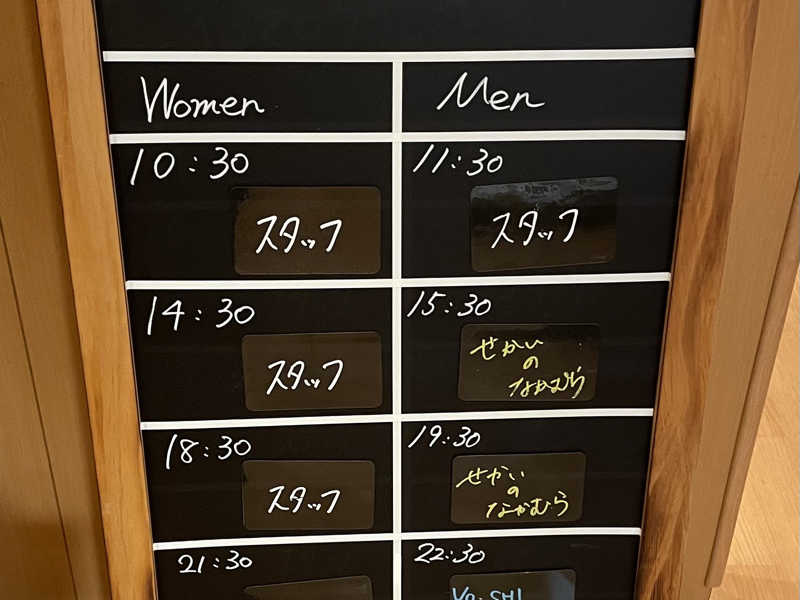 Women
Men
10:30
スタッフ
11:30
スタッフ
14:30
スタッフ
15:30
せかい
の
なかむら
18:30
スタッフ
19:30
せかい
の
なかむら
21:30
22:30